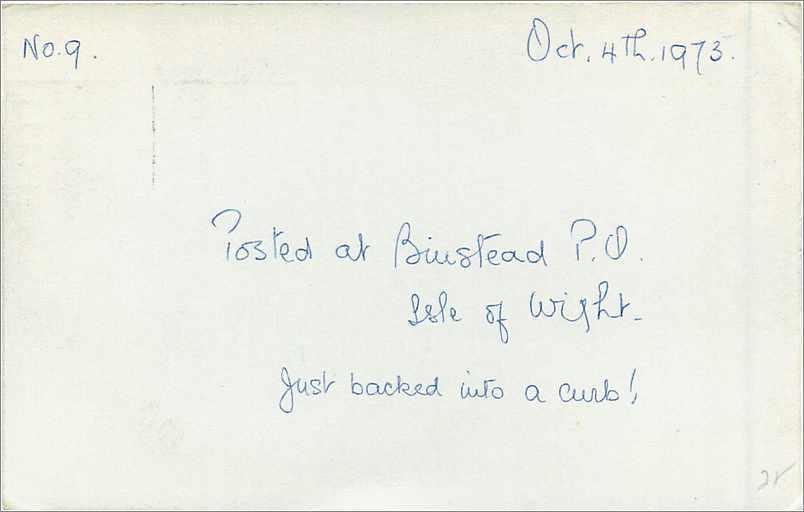 No. 9.
Oct. 4th. 1973.
Posted at Binstead P.O.
Isle of Wight.
Just backed into a curb!